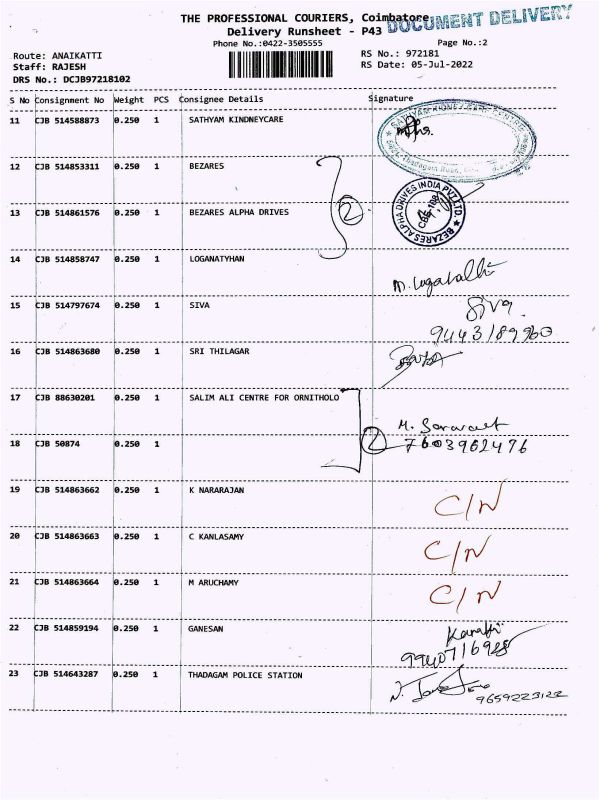 THE PROFESSIONAL COURIERS, Coimbatore
DOCUMENT DELIVERY
Delivery Runsheet - P43
Phone No.:0422-3505555
Page No.:2
Route: ANAIKATTI
RS No.: 972181
Staff: RAJESH
RS Date: 05-Jul-2022
DRS No.: DCJB97218102
S No Consignment No Weight PCS Consignee Details Signature
11 CJB 514588873 0.250 1 SATHYAM KINDNEYCARE
12 CJB 514853311 0.250 1 BEZARES
2
13 CJB 514861576 0.250 1 BEZARES ALPHA DRIVES
BEZARES ALPHA DRIVES INDIA PVT LTD.
14 CJB 514858747 0.250 1 LOGANATYHAN
15 CJB 514797674 0.250 1 SIVA
Siva
9443189960
16 CJB 514863680 0.250 1 SRI THILAGAR
17 CJB 88630201 0.250 1 SALIM ALI CENTRE FOR ORNITHOLO
18 CJB 50874 0.250 1
2
7603962476
19 CJB 514863662 0.250 1 K NARARAJAN
C/N
20 CJB 514863663 0.250 1 C KANLASAMY
C/N
21 CJB 514863664 0.250 1 M ARUCHAMY
C/N
22 CJB 514859194 0.250 1 GANESAN
23 CJB 514643287 0.250 1 THADAGAM POLICE STATION
9659223122